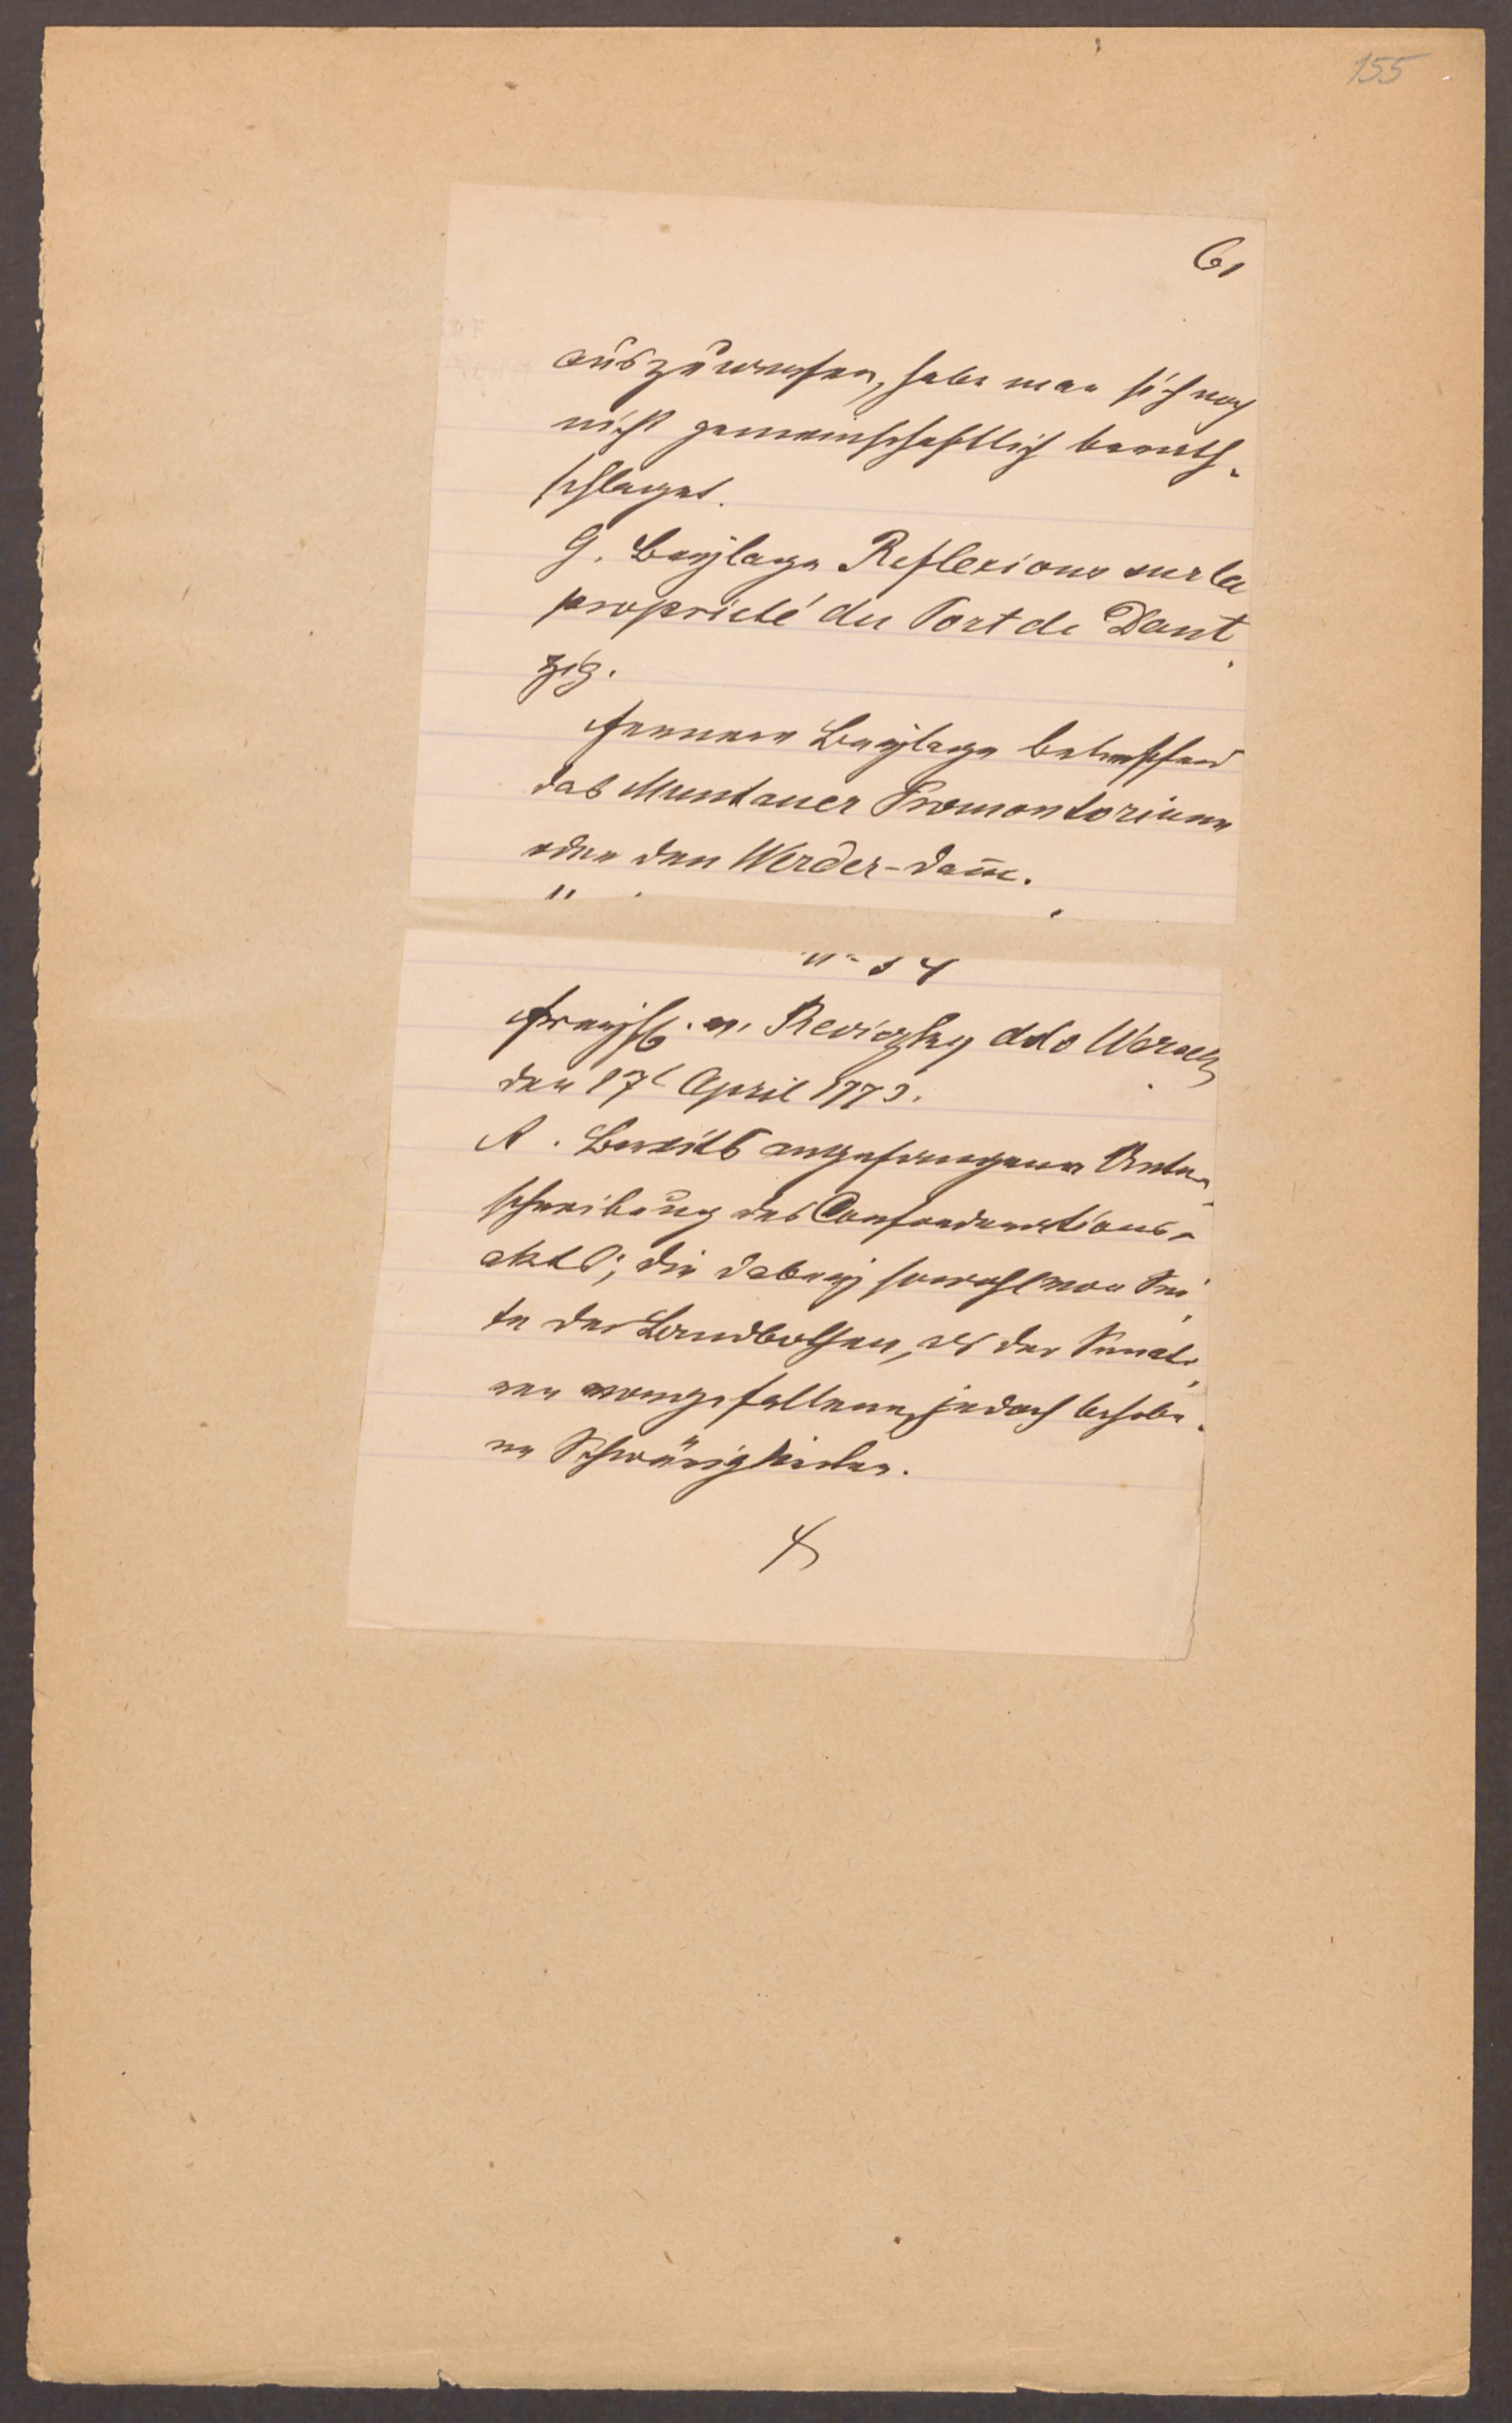 155
61
auszuwerfen, habe man sich noch
nicht gemeinschaftlich berath-
schlaget.
G. Beylage Reflexions sur la
proprieté du Port de Dant
zig.
Fernere Beylage betreffend
das Muntauer Promontorium
oder den Werder-Dam̅.
54
Freyh. v. Reviczky ddo Warsch
den 17t April 1773.
A. Bereits angefangene Unter
schreibung des Confoederations-
akts; die dabey sowohl von Sei
te der Landbothen, als der Senato
ren vorgefallene, jedoch behobe
ne Schwürigkeiten.